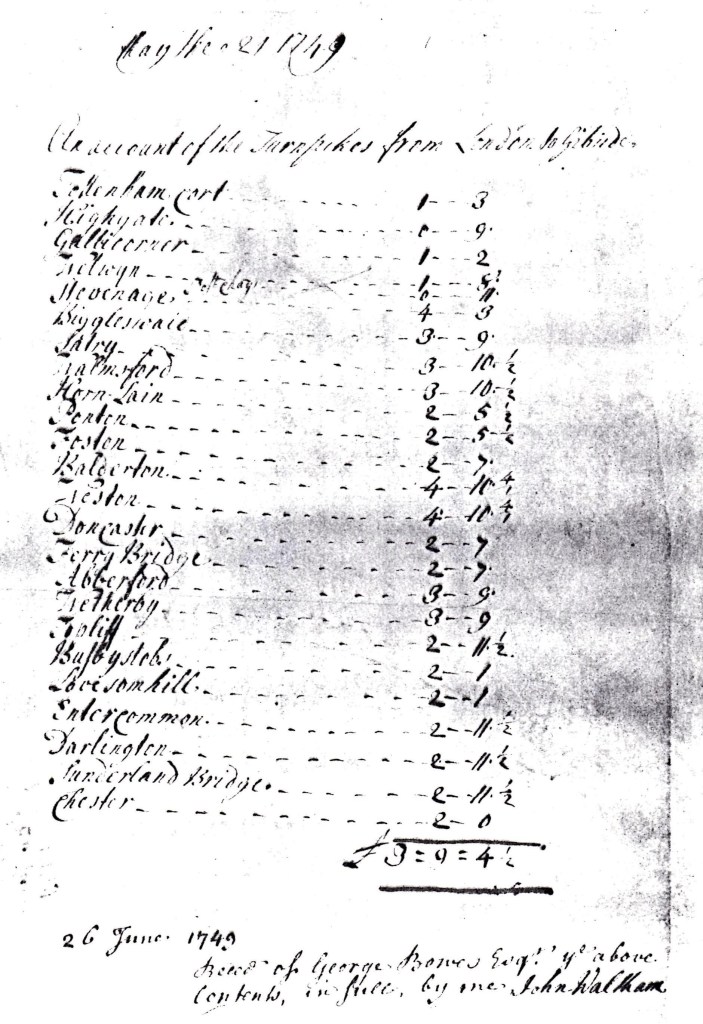 May the 21 1749
An account of the Turnpikes from London to Gibside
Tottenham Cort 1 3
Highgate 0 9
Gallicorner 1 2
Welwyn 1
Stevenage 0 11
Biggleswaie 4 3
3 9
Walmsford 3 10 ½
Horn Lain 3 10 ½
Ponton 2 5 ½
Foston 2 5 ½
Balderton 2 7
Weston 4 10
Doncastr 4 10
Ferry Bridge 2 7
Abberford 2 7
Wetherby 3 9
Topliff 3 9
Busbystobs 2 11 ½
Lovesomhill 2 1
Entercommon 2 1
Darlington 2 11 ½
Sunderland Bridge 2 11 ½
Chester 2 11 ½
2 0
£ 3 = 9 = 4 ½
26 June 1749
Recd of George Bowes Esqr ye above
Contents, in full, by me John Waltham